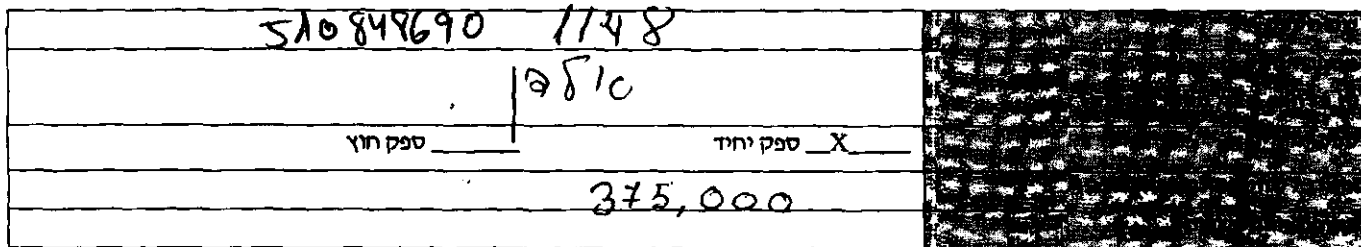 510848690 1148
סילפן
ספק יחיד __X____ ספק חוץ ______
375,000